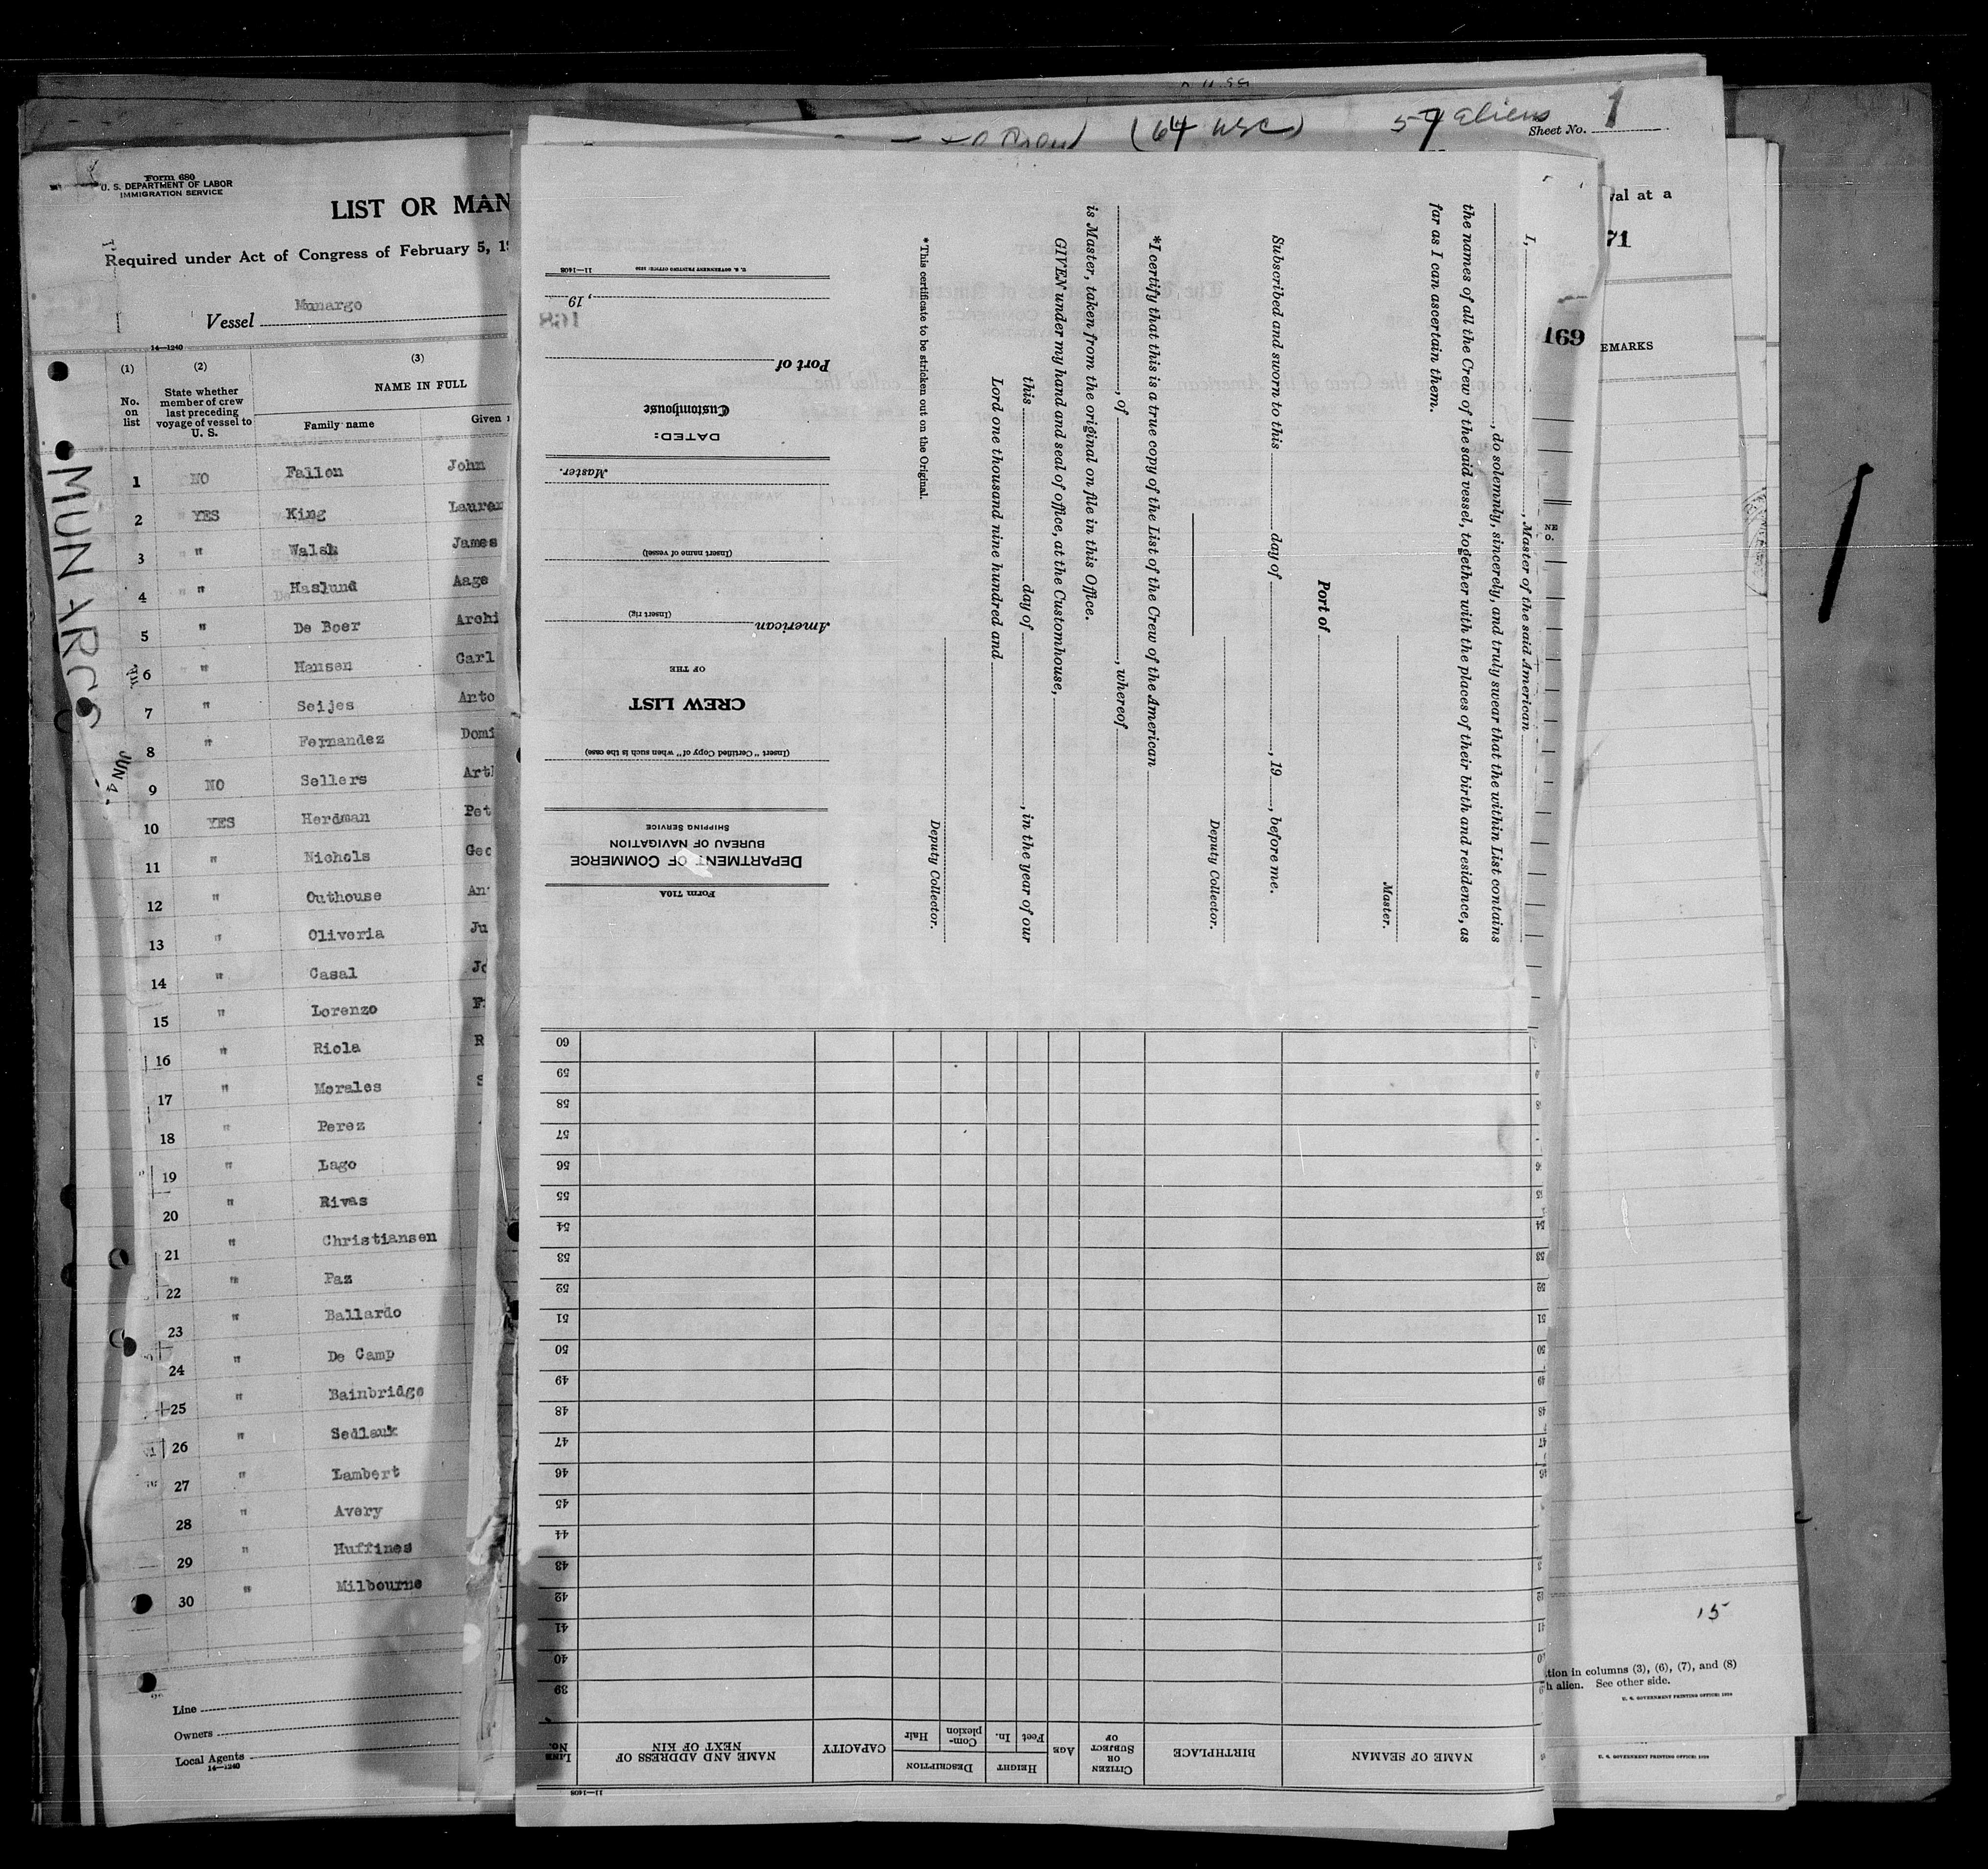 57 aliens
(64 USC)
Sheet No. 1
Form 680
U. S. DEPARTMENT OF LABOR
IMMIGRATION SERVICE
LIST OR MAN
Required under Act of Congress of February 5, 19
Vessel Munargo
14—1240
(1) (2) (3)
No. on list
State whether member of crew last preceding voyage of vessel to U. S.
NAME IN FULL
Family name Given
1 NO Fallon John
2 YES King Lauren
3 " Walsh James
4 " Haslund Aage
5 " De Boer Archi
6 " Hansen Carl
7 " Seijes Anto
8 " Fernandez Domi
9 NO Sellers Art
10 YES Herdman Pet
11 " Nichols Geo
12 " Outhouse An
13 " Oliveria Ju
14 " Casal Jo
15 " Lorenzo F
16 " Riola R
17 " Morales S
18 " Perez
19 " Lago
20 " Rivas
21 " Christiansen
22 " Paz
23 " Ballardo
24 " De Camp
25 " Bainbridge
26 " Sedlauk
27 " Lambert
28 " Avery
29 " Huffines
30 " Milbourne
Line
Owners
Local Agents
14—1240
MUNARGO
JUN 4
I, , Master of the said American
, do solemnly, sincerely, and truly swear that the within List contains
the names of all the Crew of the said vessel, together with the places of their birth and residence, as
far as I can ascertain them.
Master.
Port of
Subscribed and sworn to this day of , 19 , before me.
Deputy Collector.
*I certify that this is a true copy of the List of the Crew of the American
, of , whereof
is Master, taken from the original on file in this Office.
GIVEN under my hand and seal of office, at the Customhouse,
this day of , in the year of our
Lord one thousand nine hundred and
Deputy Collector.
*This certificate to be stricken out on the Original.
Form 710A
DEPARTMENT OF COMMERCE
BUREAU OF NAVIGATION
SHIPPING SERVICE
(Insert "Certified Copy of" when such is the case)
CREW LIST
OF THE
American
(Insert rig)
(Insert name of vessel)
Master.
DATED:
Customhouse
Port of
, 19
168
11—1408
11—1408
LINE No.
NAME OF SEAMAN
BIRTHPLACE
CITIZEN OR SUBJECT OF
AGE
HEIGHT
Feet In.
DESCRIPTION
Complexion Hair
CAPACITY
NAME AND ADDRESS OF NEXT OF KIN
39
40
41
42
43
44
45
46
47
48
49
50
51
52
53
54
55
56
57
58
59
60
val at a
71
169
EMARKS
15
tion in columns (3), (6), (7), and (8)
h alien. See other side.
U. S. GOVERNMENT PRINTING OFFICE:
U. S. GOVERNMENT PRINTING OFFICE: